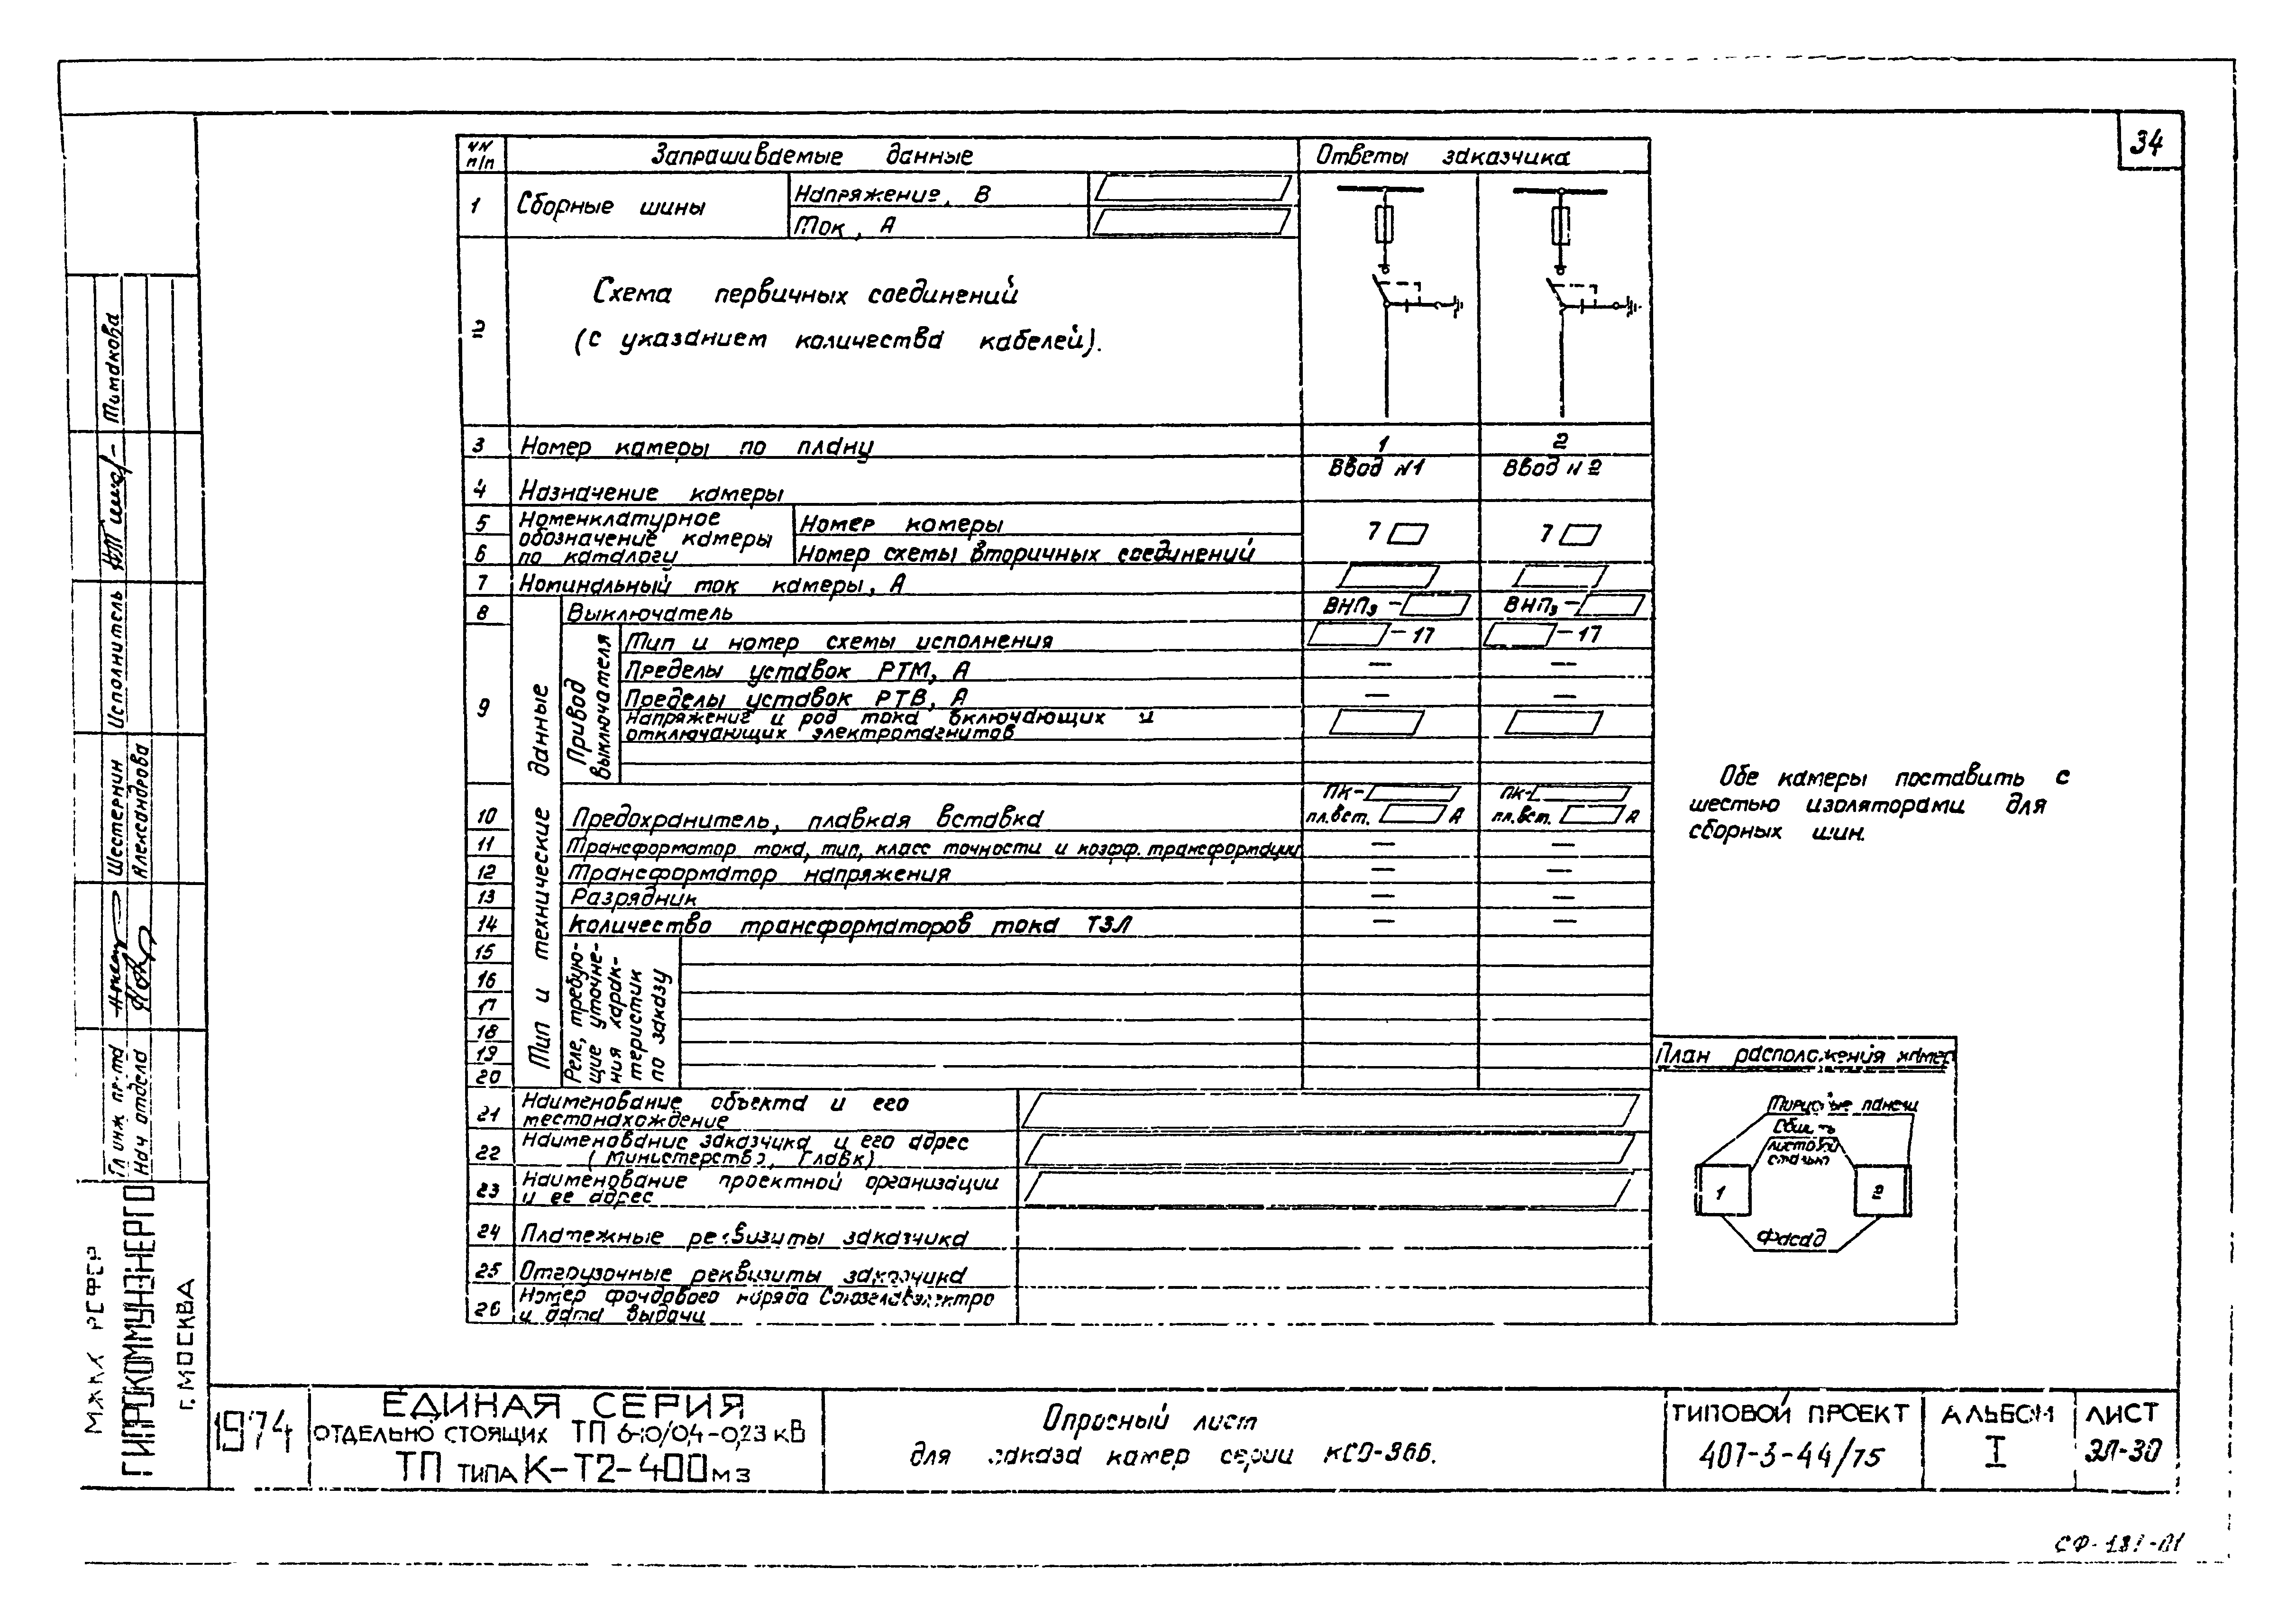 34
NN п/п
Запрашиваемые данные
Ответы заказчика
1
Сборные шины
Напряжение, В
Ток, А
2
Схема первичных соединений
(с указанием количества кабелей).
3
Номер камеры по плану
1
2
4
Назначение камеры
Ввод N1
Ввод N2
5
6
Номенклатурное
обозначение камеры
по каталогу
Номер камеры
Номер схемы вторичных соединений
7
7
7
Номинальный ток камеры, А
Тип и технические данные
8
Выключатель
ВНПз –
ВНПз –
9
Привод
выключателя
Тип и номер схемы исполнения
– 17
– 17
Пределы уставок РТМ, А
—
—
Пределы уставок РТВ, А
—
—
Напряжение и род тока включающих и
отключающих электромагнитов
10
Предохранитель, плавкая вставка
ПК–
пл.вст. А
ПК–
пл.вст. А
11
Трансформатор тока, тип, класс точности и коэфф. трансформации
—
—
12
Трансформатор напряжения
—
—
13
Разрядник
—
—
14
Количество трансформаторов тока ТЗЛ
—
—
15
16
17
18
19
20
Реле, требую-
щие уточне-
ния харак-
теристик
по заказу
21
Наименование объекта и его
местонахождение
22
Наименование заказчика и его адрес
(Министерство, Главк)
23
Наименование проектной организации
и ее адрес
24
Платежные реквизиты заказчика
25
Отгрузочные реквизиты заказчика
26
Номер фондового наряда Союзглавэлектро
и дата выдачи
Обе камеры поставить с
шестью изоляторами для
сборных шин.
План расположения камер
Торцовые панели
Сшить
листовой
сталью
1
2
Фасад
Гл инж пр-та
Шестернин
Исполнитель
Тимакова
Нач отдела
Александрова
МЖКХ РСФСР
ГИПРОКОММУНЭНЕРГО
г. МОСКВА
1974
ЕДИНАЯ СЕРИЯ
ОТДЕЛЬНО СТОЯЩИХ ТП 6-10/0,4-0,23 кВ
ТП ТИПА К-Т2-400 МЗ
Опросный лист
для заказа камер серии КСО-366.
ТИПОВОЙ ПРОЕКТ
407-3-44/75
АЛЬБОМ
I
ЛИСТ
ЭЛ-30